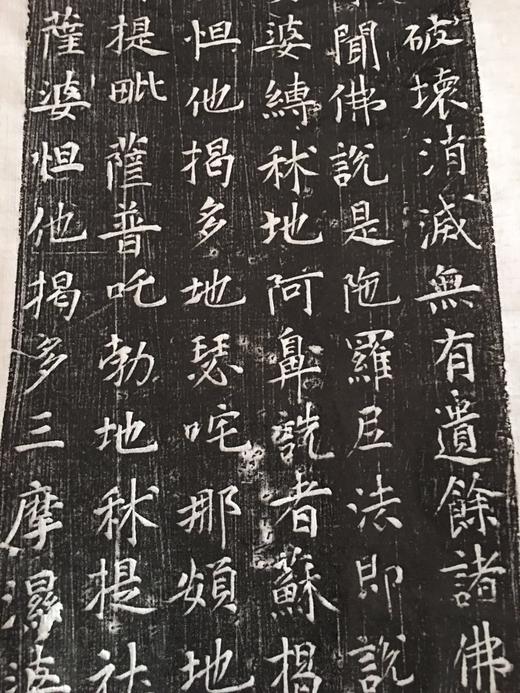 破壞消滅無有遺餘諸佛
聞佛說是陁羅尼法即說
婆縛秫地阿鼻詵者蘇揭
怛他揭多地瑟咤那頞地
提毗薩普吒勃地秫提社
薩婆怛他揭多三摩濕婆